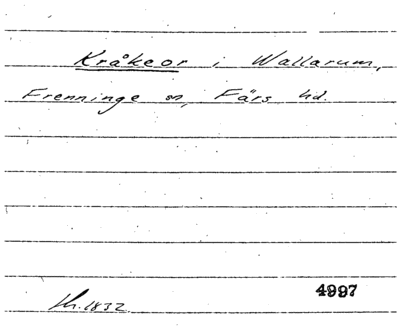 Kråkeor i Wallarum,
Frenninge sn, Färs hd.
4997
1832